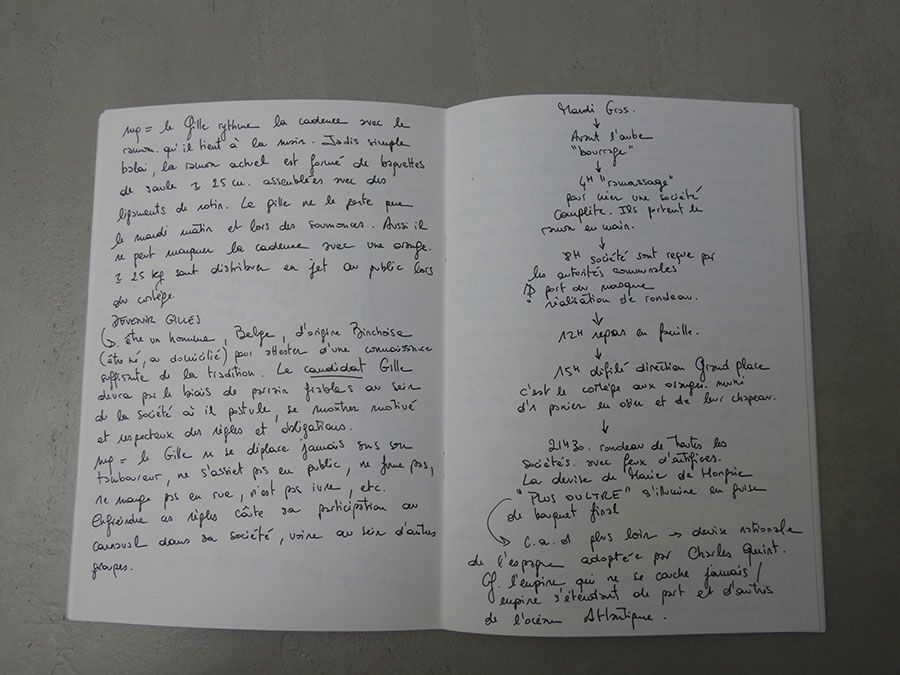 mq = le Gille rythme la cadence avec le
ramon qu'il tient à la main. Jadis simple
balai, la ramon actuel est formé de baguettes
de saule ± 25 cm. assemblées avec des
ligaments de rotin. Le gille ne le porte que
le mardi matin et lors des soumonces. Aussi il
ne peut marquer la cadence avec une orange.
± 25 kg sont distribuer en jet au public lors
du cortège.
DEVENIR GILLES
↳ être un homme, Belge, d'origine Binchoise
(être né, ou domicilié) pour attester d'une connaissance
suffisante de la tradition. Le candidat Gille
devra par le biais de parrain fiables au sein
de la société où il postule, se montrer motivé
et respecteux des règles et obligations.
mq = le Gille ne se déplace jamais sans son
tamboureur, ne s'assiet pas en public, ne fume pas,
ne mange pas en rue, n'est pas ivre, etc.
Enfreindre ces règles coûte sa participation au
carnaval dans sa société, voire au sein d'autres
groupes.
Mardi Gras.
↓
Avant l'aube
"bourrage"
↓
4H "ramassage"
pour créer une société
complète. Ils portent le
ramon en main.
↓
8H société sont reçue par
les autorités communales
port du masque
réalisation de rondeau.
↓
12H repas en famille.
↓
15H défilé direction Grand place
c'est le cortège aux oranges. muni
d'1 panier en osier et de leur chapeau.
↓
21H30. rondeau de toutes les
sociétés. avec feux d'artifices.
La devise de Marie de Hongrie
"PLUS OULTRE" s'illumine en guise
de bouquet final
c.a.d plus loin → devise nationale
de l'espagne adoptée par Charles Quint.
Cf. l'empire qui ne se couche jamais /
empire s'étendant de part et d'autres
de l'océan Atlantique.